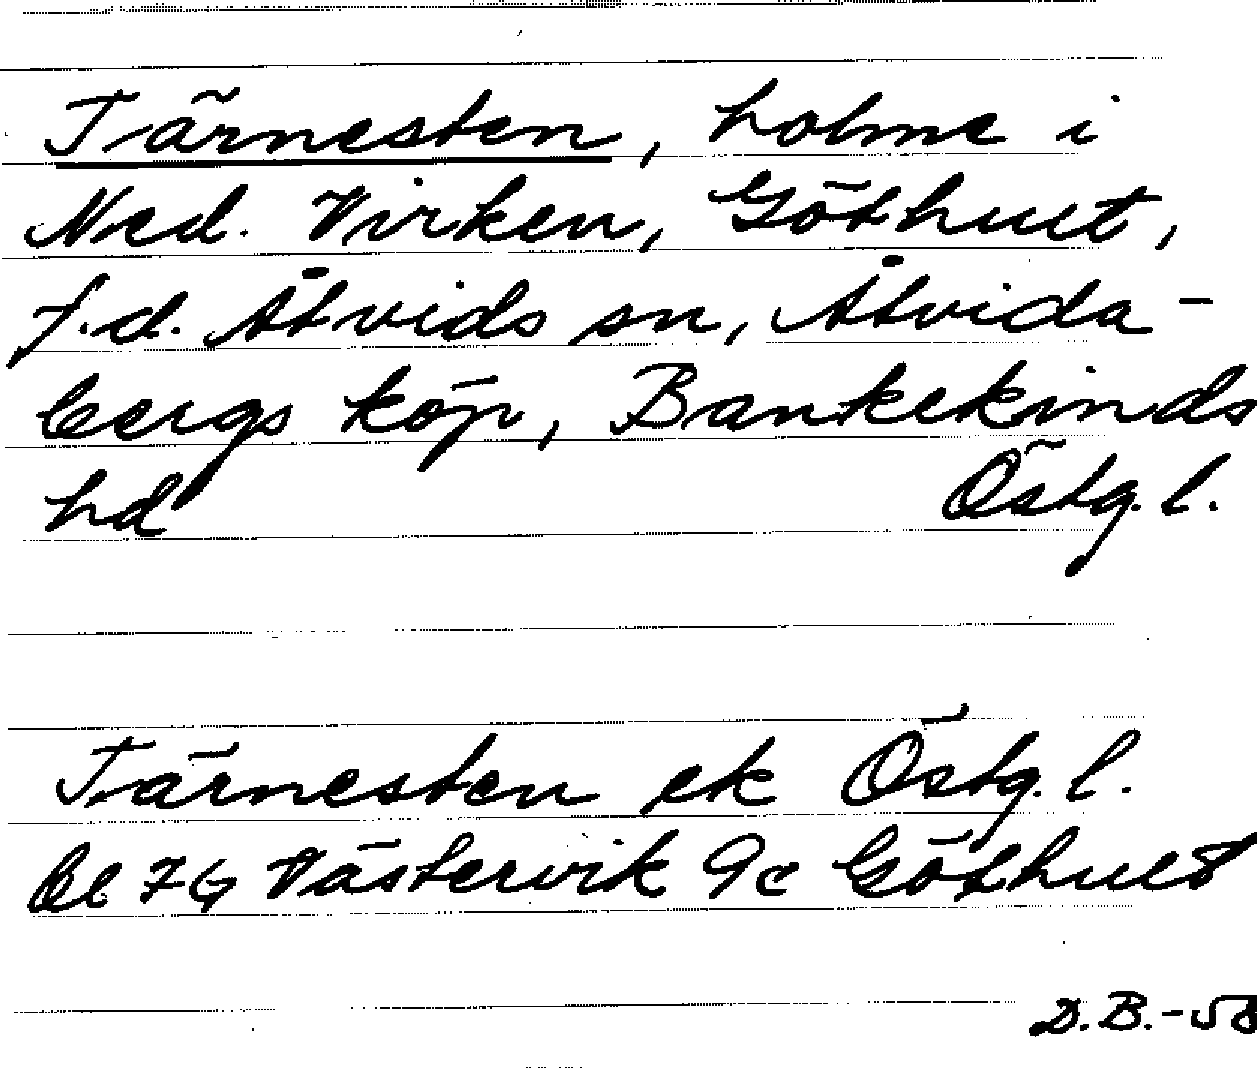 Tärnesten, holme i
Ned. Virken, Göthult,
f.d. Åtvids sn, Åtvida-
bergs köp, Bankekinds
hd Östg. l.
Tärnesten ek Östg. l.
Bl 7G Västervik 9c Göthult
D.B.-58